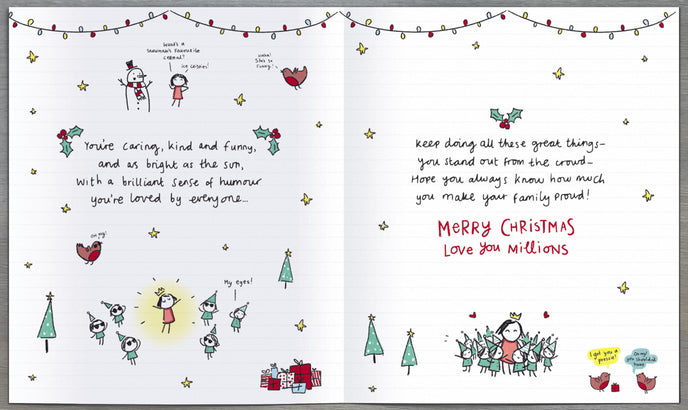 What's a
snowman's favourite
cereal?
ice crispies!
haha!
She's so
funny!
You're caring, kind and funny,
and as bright as the sun,
With a brilliant sense of humour
you're loved by everyone...
oh my!
My eyes!
Keep doing all these great things–
you stand out from the crowd–
Hope you always know how much
you make your family proud!
MERRY CHRISTMAS
LOVE YOU MILLIONS
I got you a
pressie!
Oh my!
you shouldn't
have